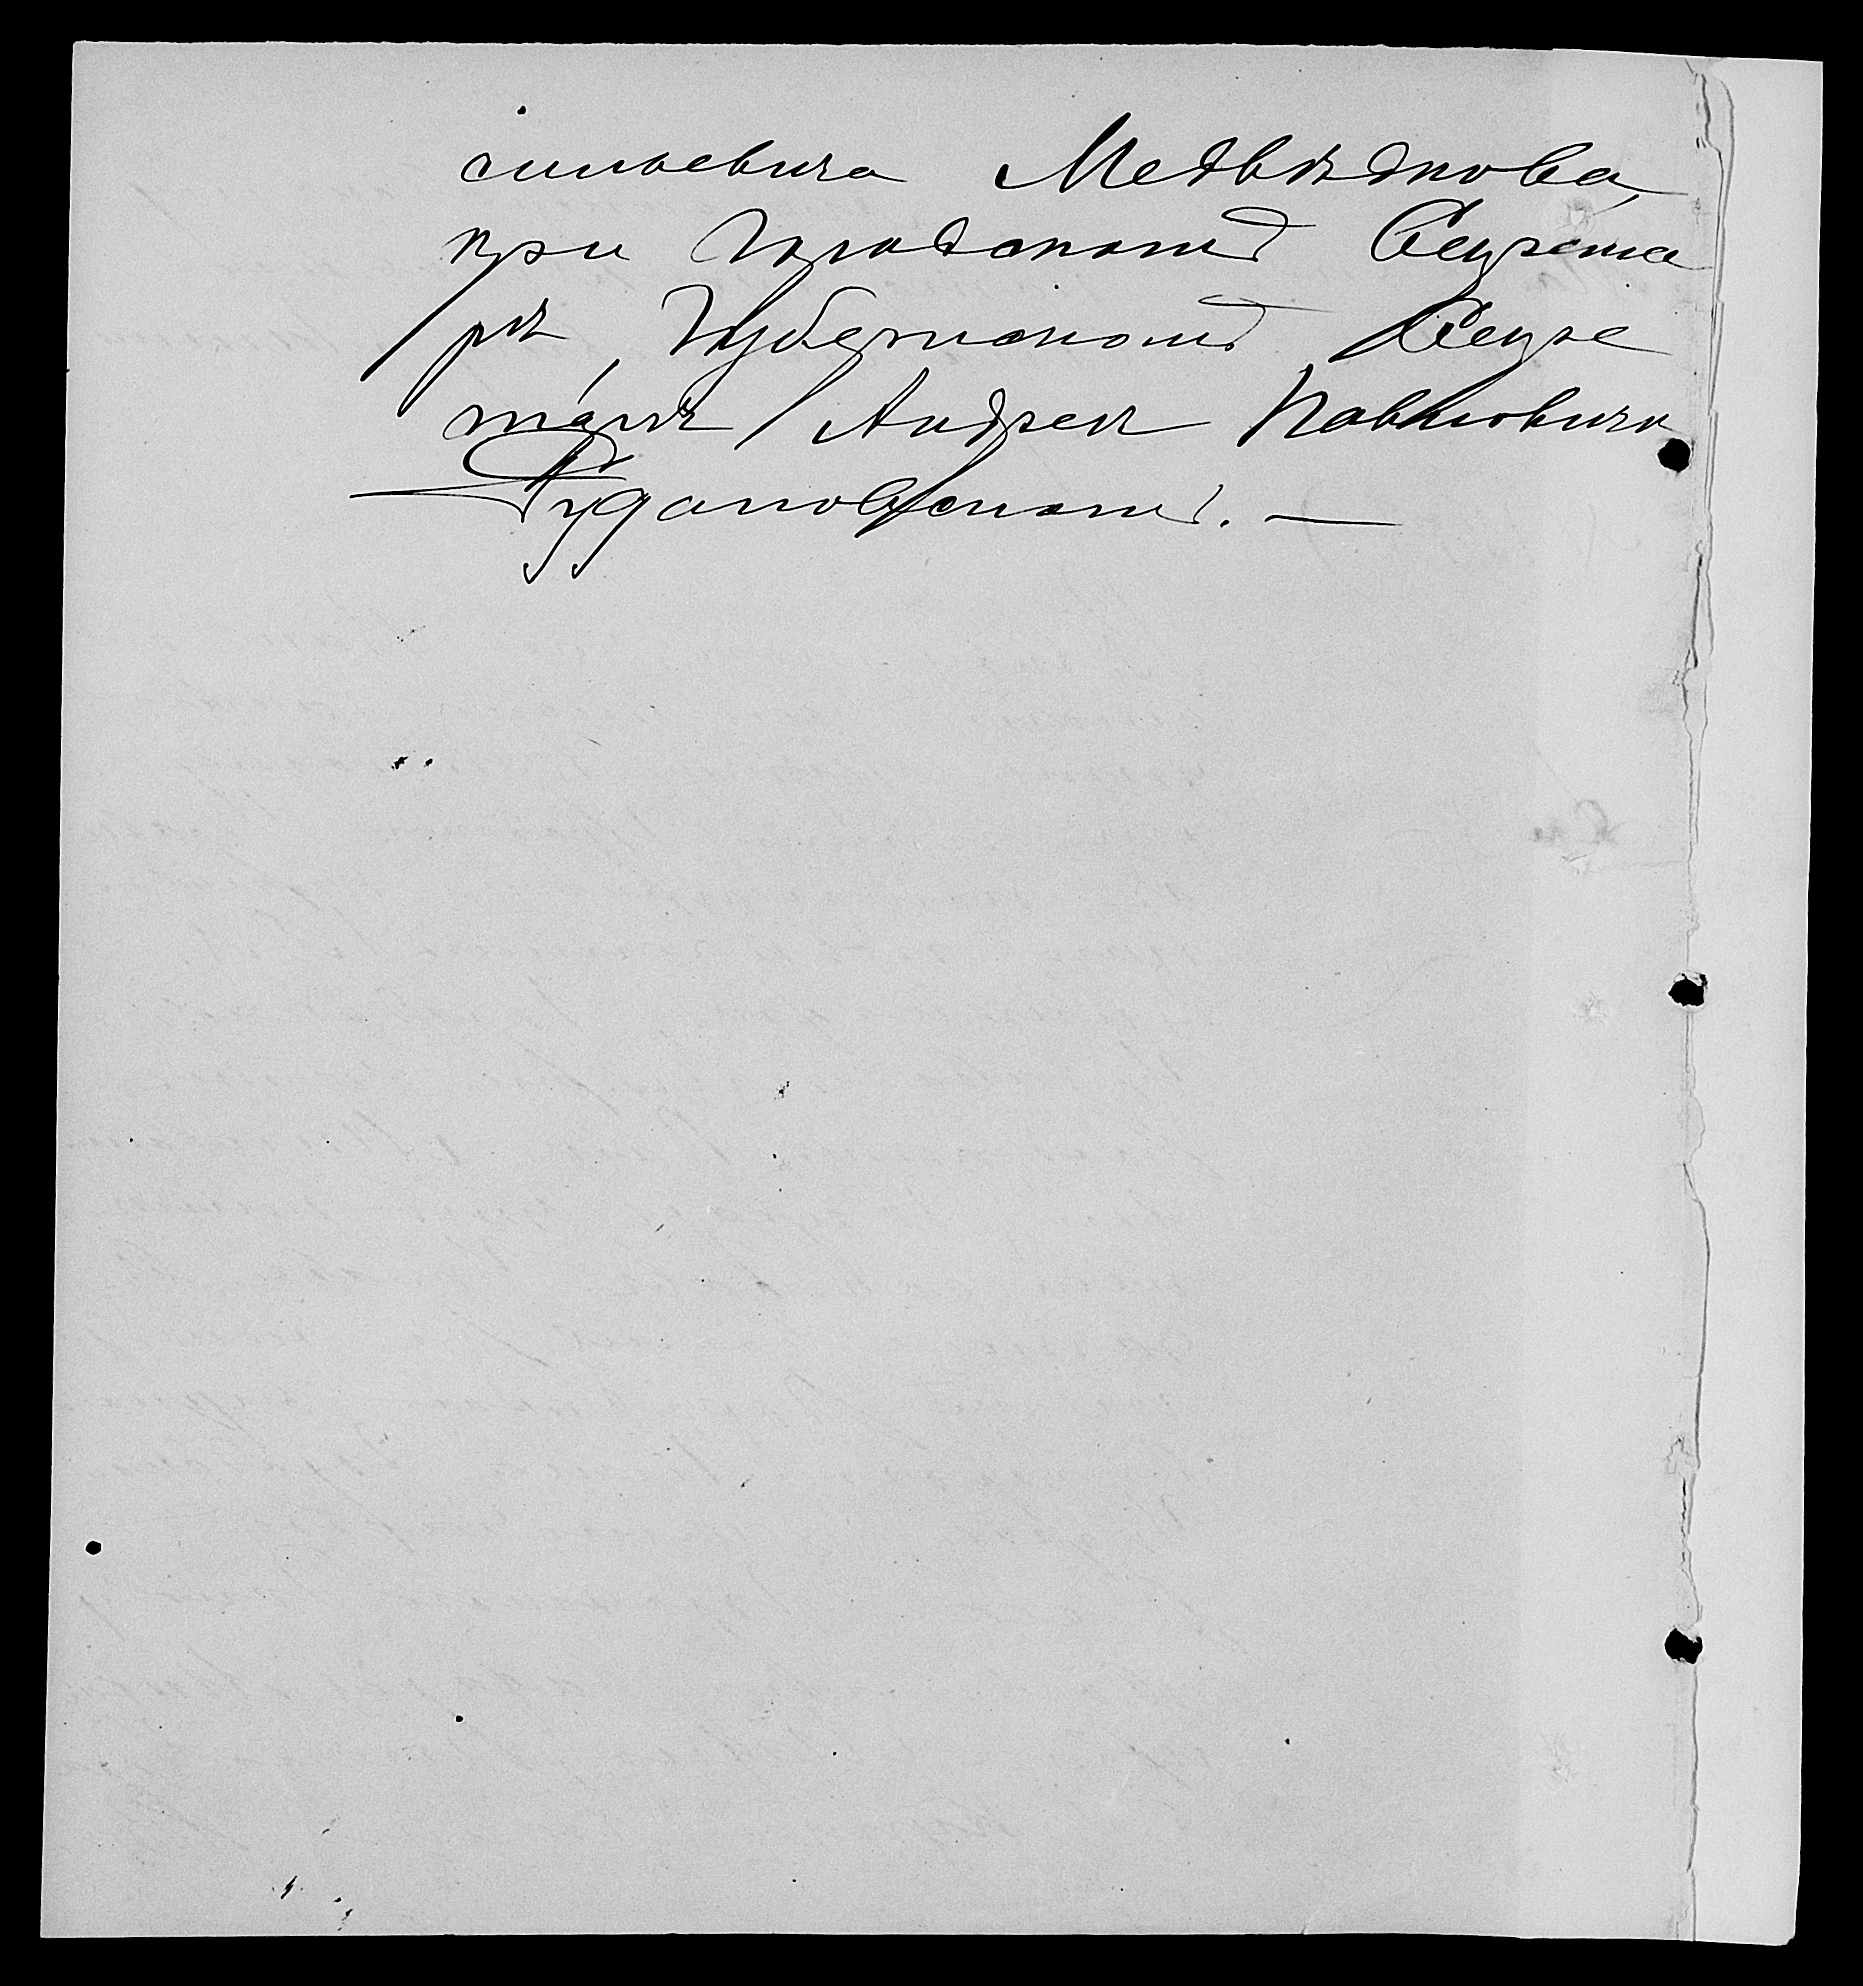 сильевича Медвѣдкова,
при Городскомъ Секрета
рѣ, Губернскомъ Секре
тарѣ Андреѣ Павловичѣ
Рудановскомъ. —